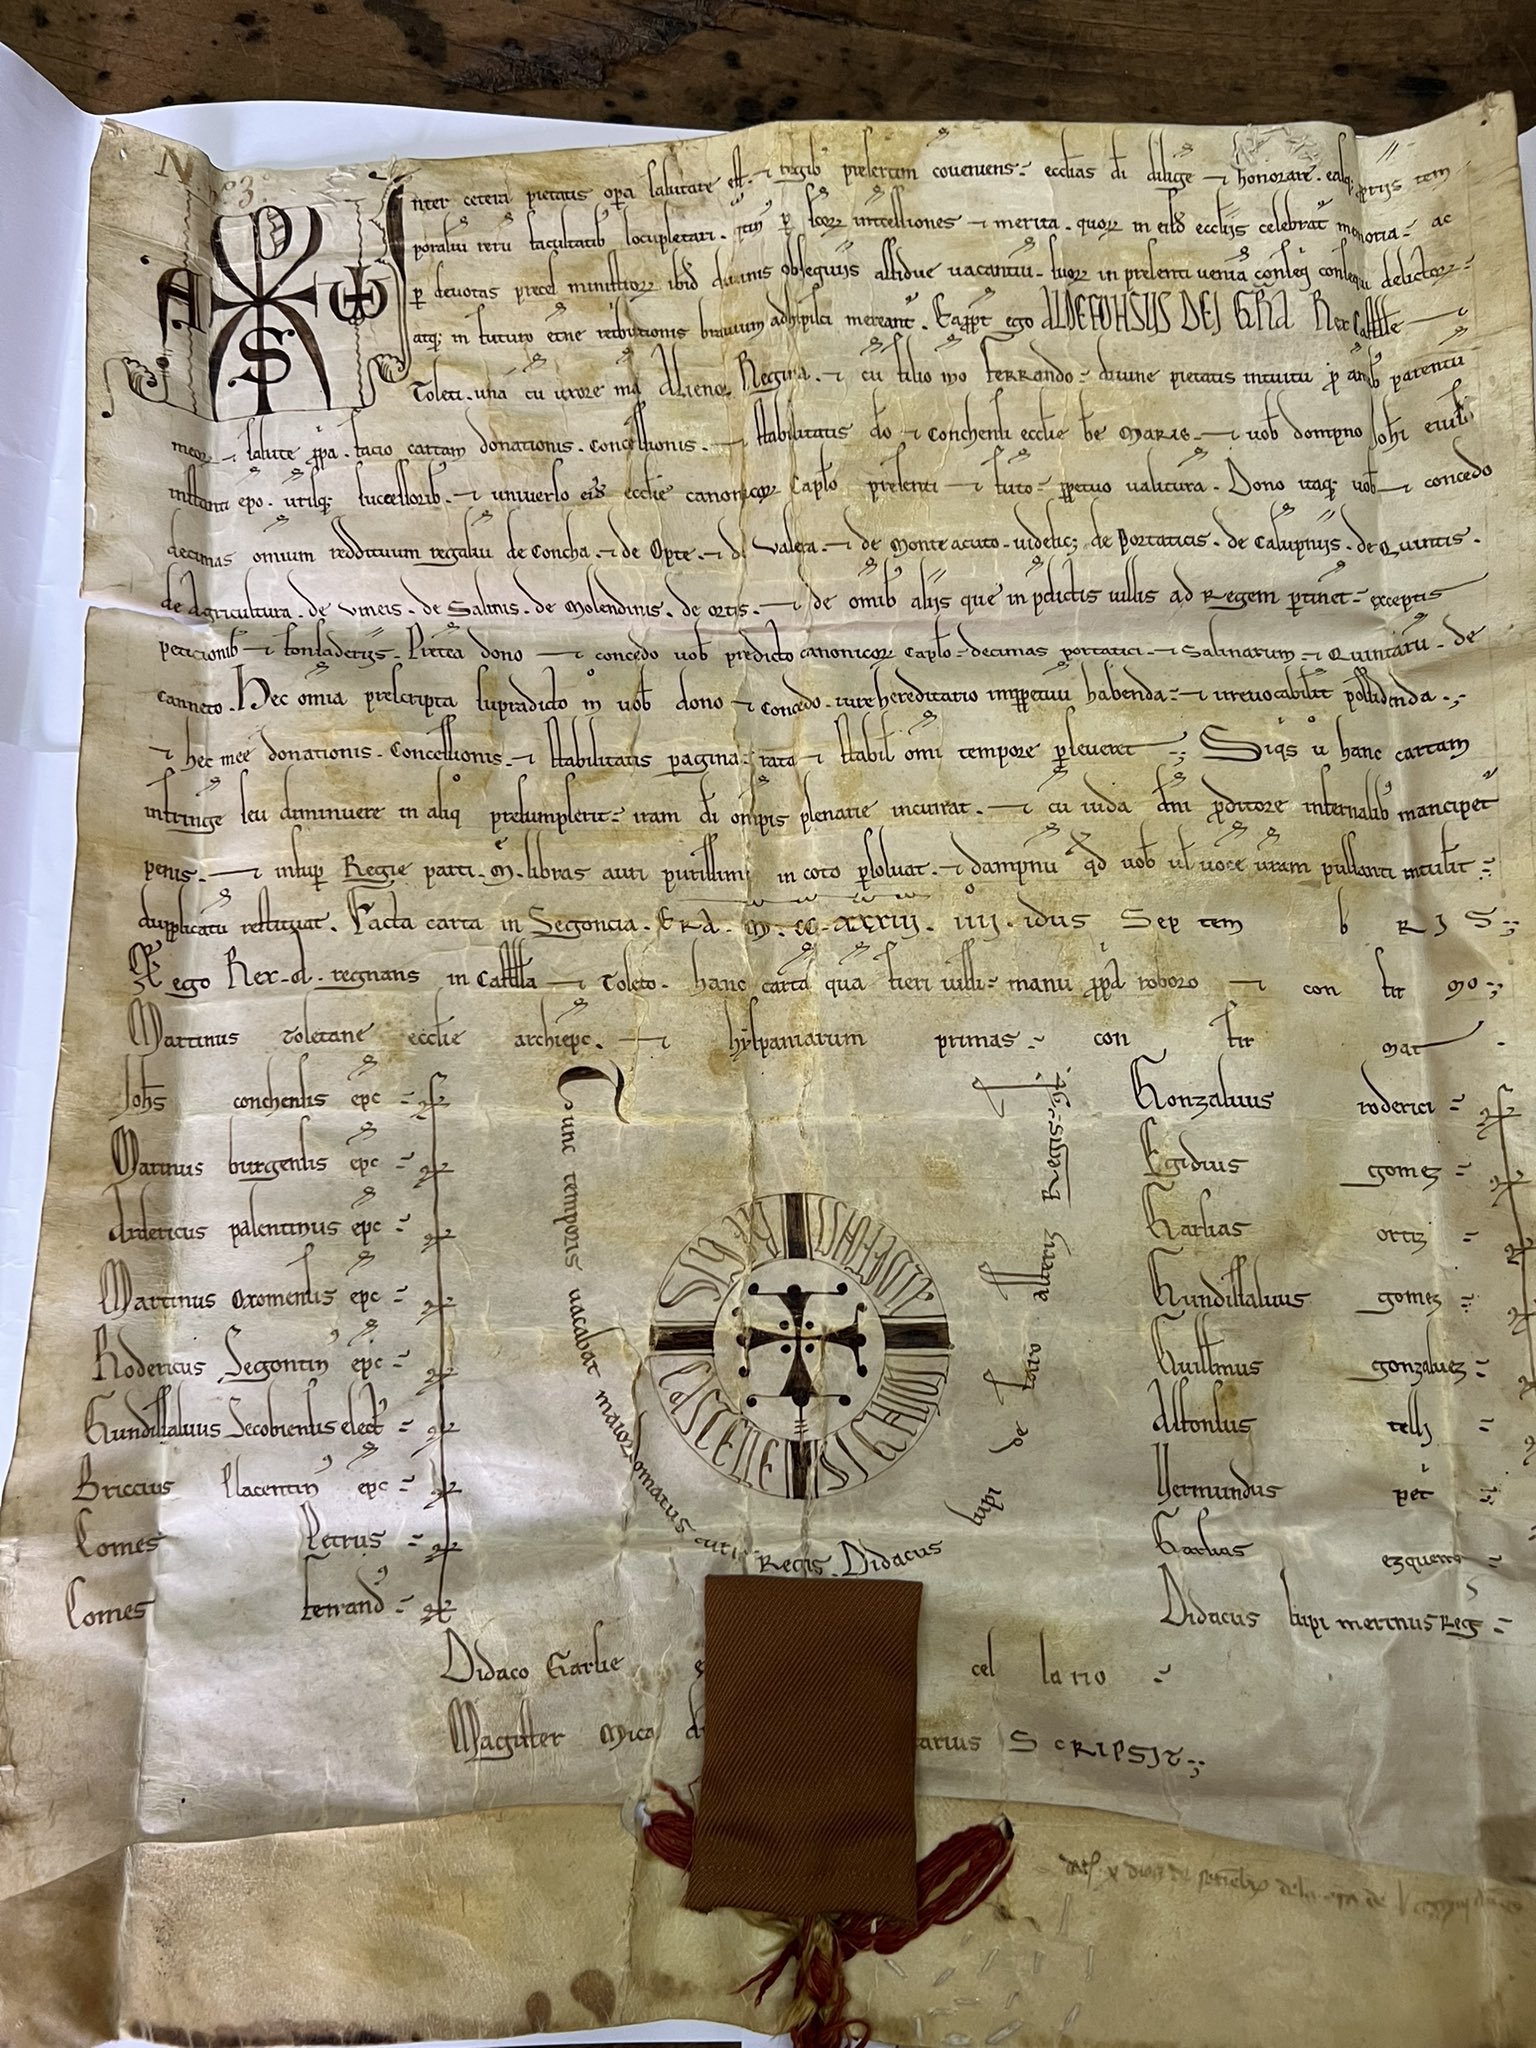 N º 3.
A ω S
Inter cetera pietatis opa salutare est. ⁊ regib; presertim conveniens. ecctias di dilige ⁊ honorare. easq; ppriis tem
poraliu reru facultatib locupletari. qtin p scor intcessiones ⁊ merita. quor in eisd ecctiis celebrat memoria. ac
p devotas preces ministror ibid divinis obsequiis assidue vacantiu. suor in presenti venia consequi delictor.
atq; in futuro etne retbutionis bravium adhipisci mereant. Eappt ego ALDEFONSUS DEI GRA Rex Castelle ⁊
Toleti. una cu uxore mea Alienor Regina. ⁊ cu filio meo Ferrando. divine pietatis intuitu p aiab parentu
meor ⁊ salute ppa. facio cartam donationis. concessionis. ⁊ stabilitatis do ⁊ Conchensi ecctie be Marie. ⁊ vob dompno Johi eiusd
instanti epo. vrisq; successorib. ⁊ universo eiusd ecctie canonicor Capto presenti ⁊ futo. ppetuo valitura. Dono itaq; vob ⁊ concedo
decimas omium reddituum regaliu de Concha. ⁊ de Opte. ⁊ d Valera. ⁊ de Monte acuto. videlic; de Portaticis. de Calupniis. de Quintis.
de Agricultura. de vineis. de Salinis. de Molendinis. de ortis. ⁊ de omib aliis que in pdictis villis ad Regem ptinet. exceptis
peticionib ⁊ fonsaderiis. Pretea dono ⁊ concedo vob predicto canonicor Capto. decimas portatici. ⁊ Salinarum. ⁊ Quintaru. de
canneto. Hec omia prescripta supradicto m vob dono ⁊ Concedo. iure hereditario imppetuu habenda. ⁊ irrevocabilit possidenda.
⁊ hec mee donationis. Concessionis. ⁊ stabilitatis pagina. rata ⁊ stabil omi tempore pseveret. Siqs v hanc cartam
infringe seu diminuere in aliq presumpserit. iram di omptis plenarie incurrat. ⁊ cu iuda dni pditore infernalib mancipet
penis. ⁊ insup Regie parti. M. libras auri purissimi in coto psolvat. ⁊ dampnu qd vob vl voce vram pulsanti intulit.
dupplicatu restituat. Facta carta in Segoncia. ERA. M. CC. XXXIII. IIII. idus Sep tem b R I S
Et ego Rex. A. regnans in Castella ⁊ Toleto. hanc carta qua fieri iussi. manu ppa roboro ⁊ con fir mo
Martinus toletane ecctie archiepc. ⁊ hyspaniarum primas. con fir mat
Johs conchensis epc
Marinus burgensis epc
Ardericus palentinus epc
Martinus Oxomensis epc
Rodericus Segontin epc
Gundissalvus Secobiensis elect
Briccius Placentin epc
Comes Petrus
Comes ferrand
Tunc temporis vacabat maiordomatus curie Regis. Didacus lupi de faro alferiz Regis. cf.
SIGNUM ALDEFONSI REGIS CASTELLE
Gonzalvus roderici
Egidius gomez
Garsias ortiz
Gundissalvus gomez
Guillmus gonzalvez
Alfonsus telliz
Garsias
Didacus lupi merinus Regis
Didaco Garsie cel la rio
Magister Mica
tarius SCRIPSIT